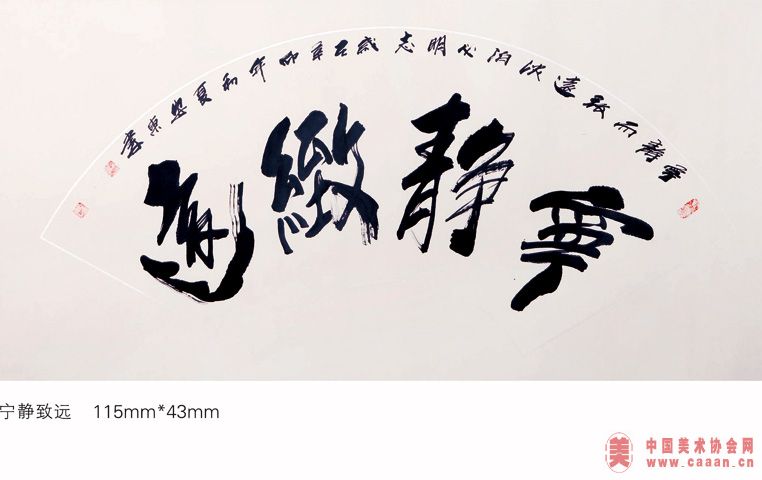 寧靜而致遠淡泊以明志歲在辛卯年初夏
寧靜緻遠
宁静致远 115mm*43mm
美 中国美术协会网
www.caaan.cn